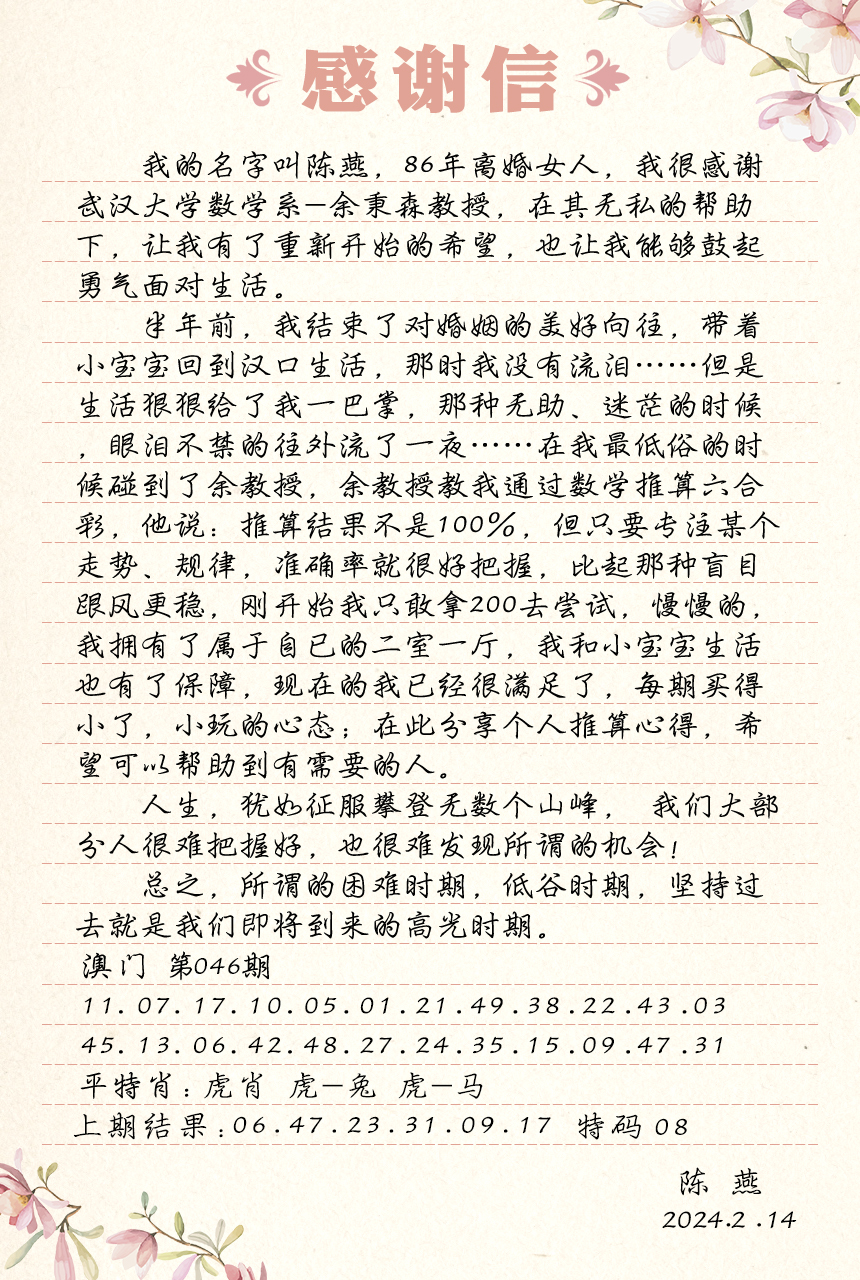 感谢信
我的名字叫陈燕，86年离婚女人，我很感谢
武汉大学数学系—余秉森教授，在其无私的帮助
下，让我有了重新开始的希望，也让我能够鼓起
勇气面对生活。
半年前，我结束了对婚姻的美好向往，带着
小宝宝回到汉口生活，那时我没有流泪……但是
生活狠狠给了我一巴掌，那种无助、迷茫的时候
，眼泪不禁的往外流了一夜……在我最低俗的时
候碰到了余教授，余教授教我通过数学推算六合
彩，他说：推算结果不是100%，但只要专注某个
走势、规律，准确率就很好把握，比起那种盲目
跟风更稳，刚开始我只敢拿200去尝试，慢慢的，
我拥有了属于自已的二室一厅，我和小宝宝生活
也有了保障，现在的我已经很满足了，每期买得
小了，小玩的心态；在此分享个人推算心得，希
望可以帮助到有需要的人。
人生，犹如征服攀登无数个山峰， 我们大部
分人很难把握好，也很难发现所谓的机会！
总之，所谓的困难时期，低谷时期，坚持过
去就是我们即将到来的高光时期。
澳门 第046期
11.07.17.10.05.01.21.49.38.22.43.03
45.13.06.42.48.27.24.35.15.09.47.31
平特肖：虎肖 虎—兔 虎—马
上期结果：06.47.23.31.09.17 特码 08
陈 燕
2024.2.14